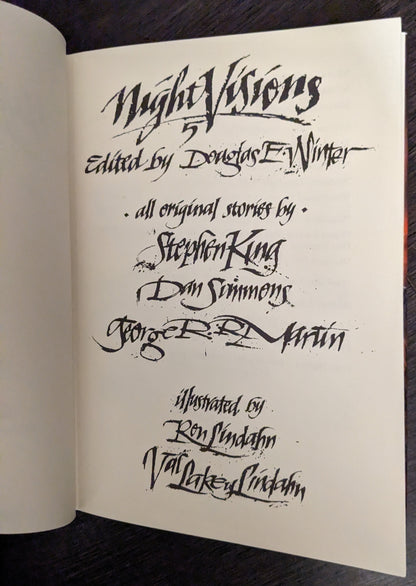 Night Visions
5
Edited by Douglas E. Winter
· all original stories by ·
Stephen King
Dan Simmons
George R. R. Martin
illustrated by
Ron Lindahn
Val Lakey Lindahn